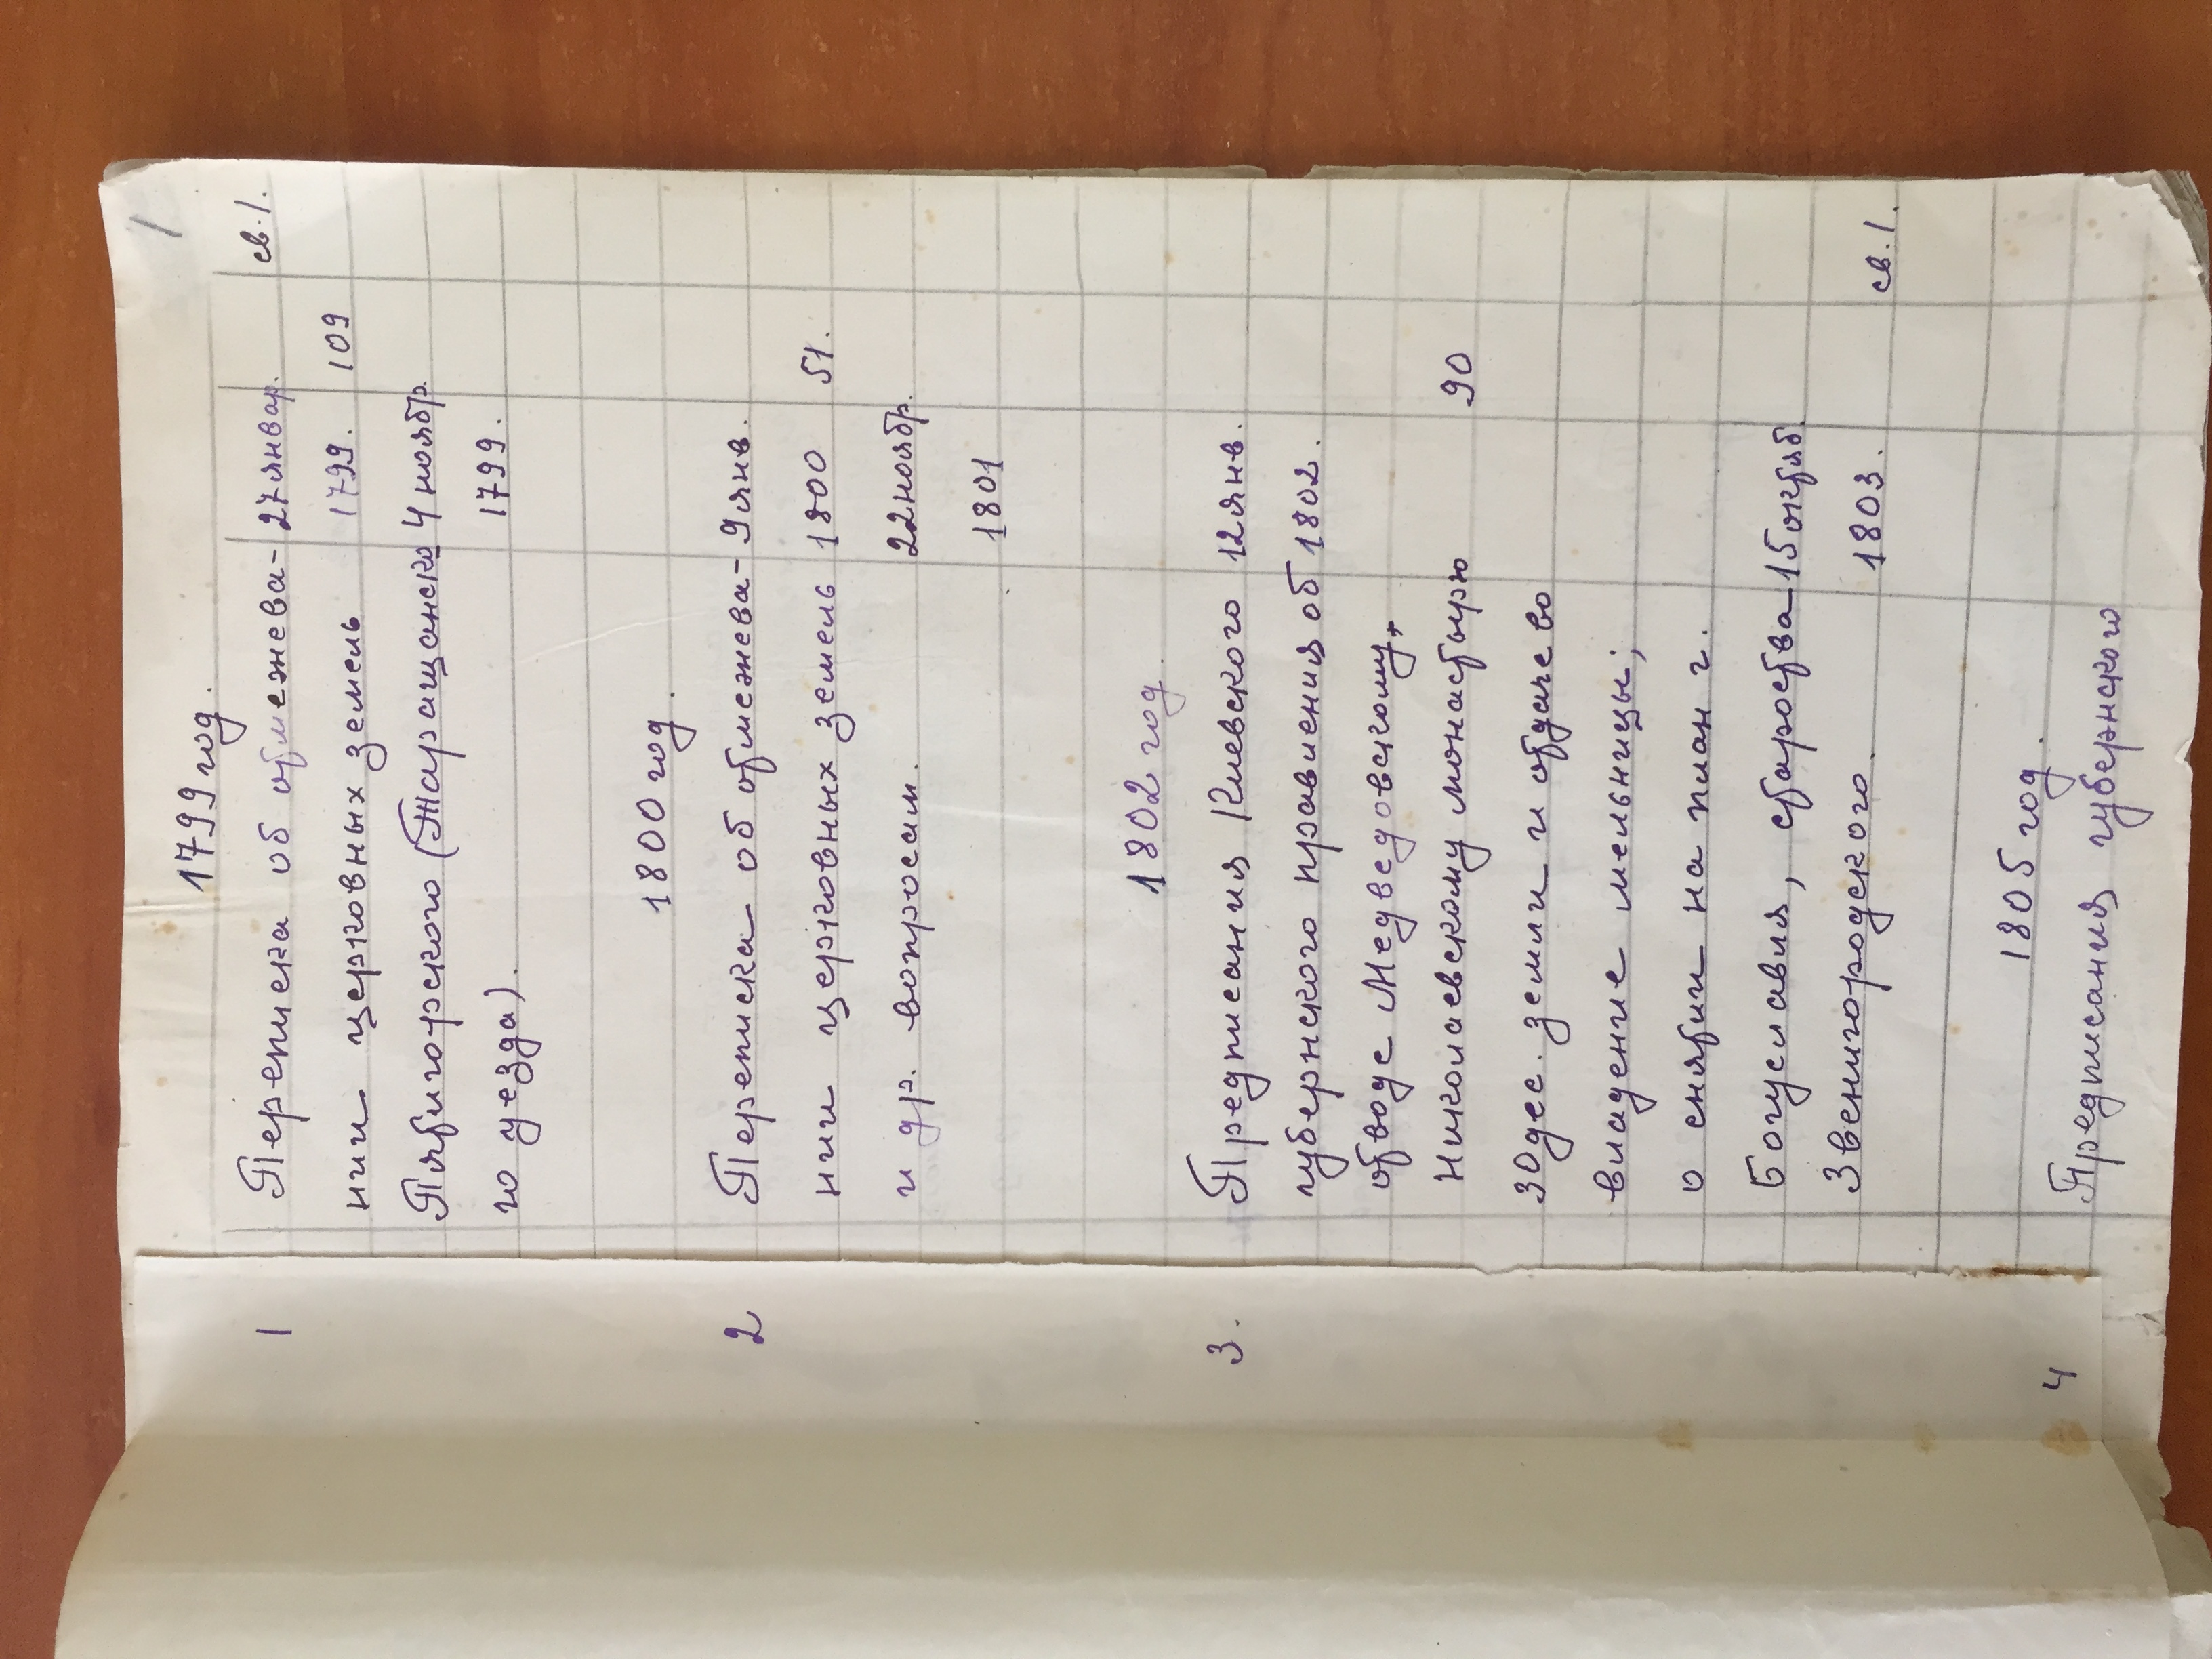 1
1799 год.
1 Переписка об обмежева- 27 январ. св. 1.
нии церковных земель 1799. 109
Пятигорского (Таращанско 4 ноябр.
го уезда). 1799.
1800 год.
2 Переписка об обмежева- 9 янв.
нии церковных земель 1800 51.
и др. вопросам. 22 ноябр.
1801
1802 год.
3. Предписания Киевского 12 янв.
губернского правления об 1802.
отводе Медведовскому,
Николаевскому монастырю 90
30 дес. земли и отдаче во
владение мельницы;
о снятии на план г.
Богуславля, староства 15 октяб.
Звенигородского. 1803. св. 1.
1805 год.
4 Предписания губернского